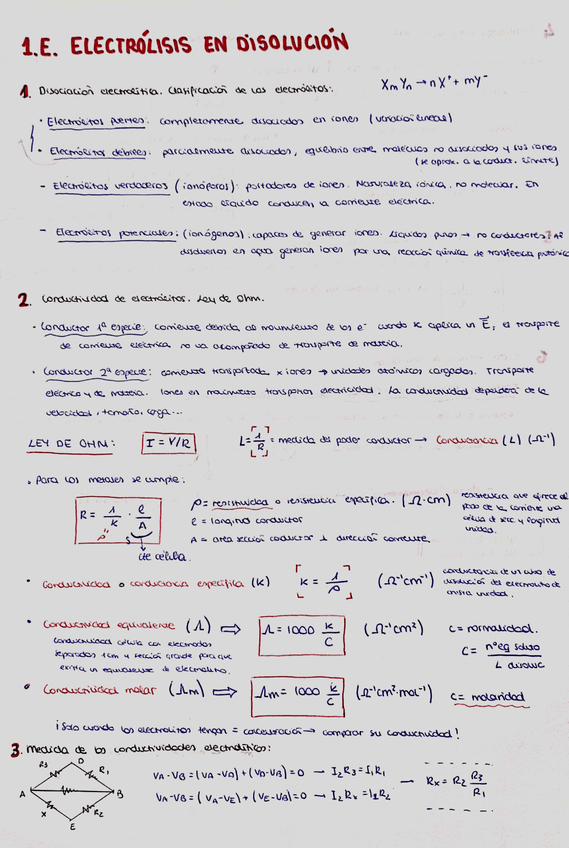 1.E. ELECTRÓLISIS EN DISOLUCIÓN
1. Disociación electrolítica. Clasificación de los electrólitos: XmYn → nX⁺ + mY⁻
· Electrólitos fuertes: completamente disociados en iones (variación lineal)
· Electrólitos débiles: parcialmente disociados, equilibrio entre moléculas no disociadas y sus iones
(se aprox. a la conduct. límite)
- Electrólitos verdaderos (ionóforos): portadores de iones. Naturaleza iónica, no molecular. En
estado líquido conducen la corriente eléctrica.
- Electrólitos potenciales: (ionógenos). capaces de generar iones. Líquidos puros → no conductores. Al
disolverlos en agua generan iones por una reacción química de transferencia protónica
2. Conductividad de electrólitos. Ley de Ohm.
· Conductor 1ª especie: corriente debida al movimiento de los e⁻ cuando se aplica un E, el transporte
de corriente eléctrica no va acompañado de transporte de materia.
· Conductor 2ª especie: corriente transportada x iones → unidades atómicas cargadas. Transporte
eléctrico y de materia. Iones en movimiento transportan electricidad. La conductividad dependerá de la
velocidad, tamaño, carga...
LEY DE OHM: I = V/R L = 1/R = medida del poder conductor → Conductancia (L) (Ω⁻¹)
· Para los metales se cumple:
R = 1/k · l/A
ρ = resistividad o resistencia específica. (Ω·cm) resistencia que ofrece al paso de la corriente una célula de sec. y longitud unidad.
l = longitud conductor
A = área sección conductor ⊥ dirección corriente.
cte de célula.
· Conductividad o conductancia específica (k) k = 1/ρ (Ω⁻¹cm⁻¹) conductancia de un cubo de disolución del electrolito de arista unidad.
· Conductividad equivalente (Λ) ⇒ Λ = 1000 k/C (Ω⁻¹cm²) C = normalidad.
conductividad célula con electrodos
separados 1cm y sección grande para que
exista un equivalente de electrolito.
C = nºeq soluto / L disoluc
· Conductividad molar (Λm) ⇒ Λm = 1000 k/C (Ω⁻¹cm²·mol⁻¹) C = molaridad
¡Solo cuando los electrolitos tengan = concentración → comparar su conductividad!
3. Medida de las conductividades electrolíticas:
R3 D R1
A B
X E R2
VA-VB = (VA-VD) + (VD-VB) = 0 → I2R3 = I1R1
VA-VB = (VA-VE) + (VE-VB) = 0 → I2Rx = I1R2
→ Rx = R2 R3/R1